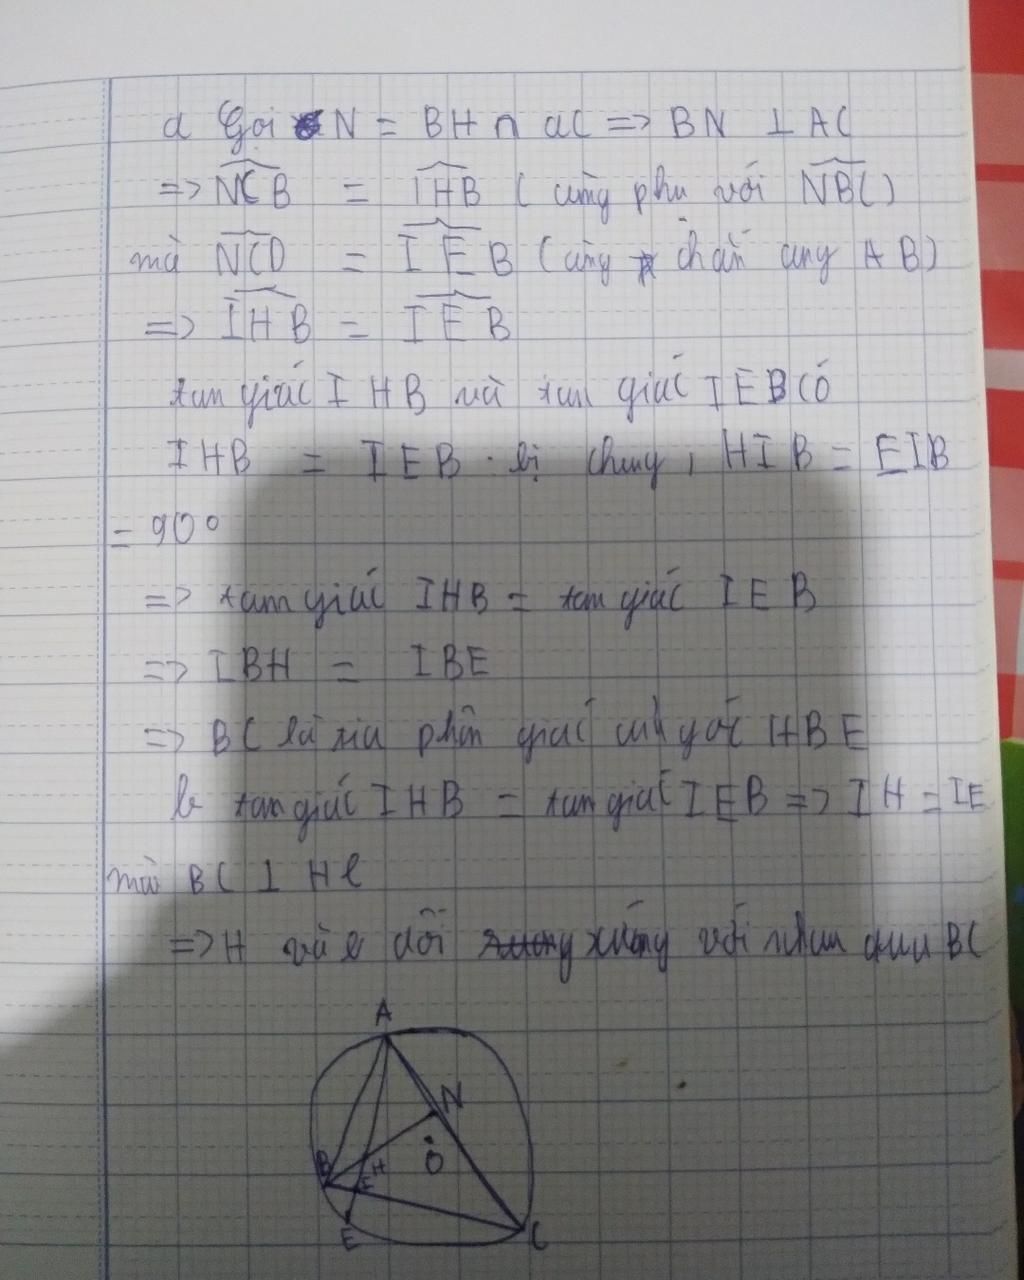 a Gọi N = BH ∩ aC => BN ⊥ AC
=> NCB = IHB ( cùng phụ với NBC)
mà NCD = IEB (cùng chắn cung AB)
=> IHB = IEB
tam giác IHB và tam giác IEB có
IHB = IEB . bị chung, HIB = EIB
= 90°
=> tam giác IHB = tam giác IEB
=> IBH = IBE
=> BC là tia phân giác của góc HBE
b tam giác IHB = tam giác IEB => IH = IE
mà BC ⊥ He
=> H và e đối xứng với nhau qua BC
A
N
O
B H
I
E C